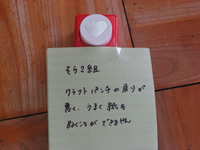 ぞう2組
クラフトパンチの戻りが
悪く、うまく紙を
ぬくことができません